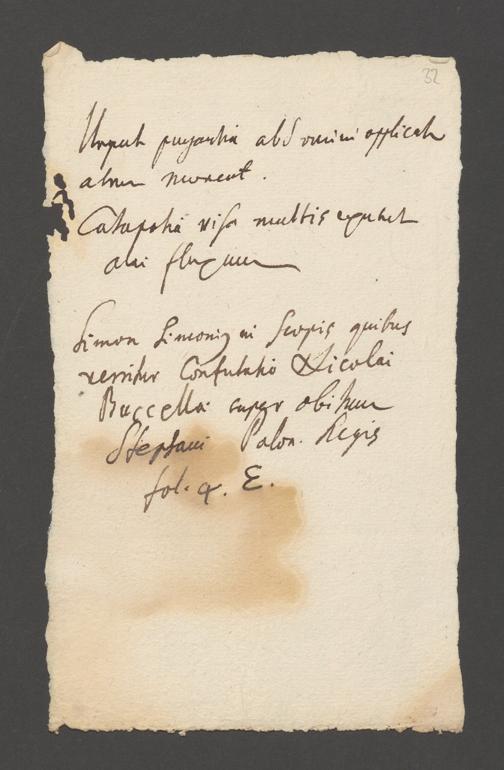 32
purgantia abdomini applicata
alvum movent.
Catapotia visa multis
alvi fluxum
Simon Simonius in Scopis quibus
verritur Confutatio Nicolai
Buccella super obitum
Stephani Polon. Regis
fol. 4. E.